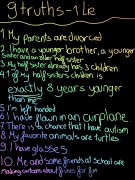 9truths-1lie
1 My parents are divorced
2. I have a younger brother, a younger
sister and an older half sister
3. My half sister already has 3 children
4. 1 of my half sisters children is
exactly 8 years younger
than me
5. I'm left handed
6. I have flown in an airplane
7. There is a chance that I have autism
8. My favorite animals are turtles
9. I have glasses
10. Me and some friends at school are
making cartoons about fries for fun